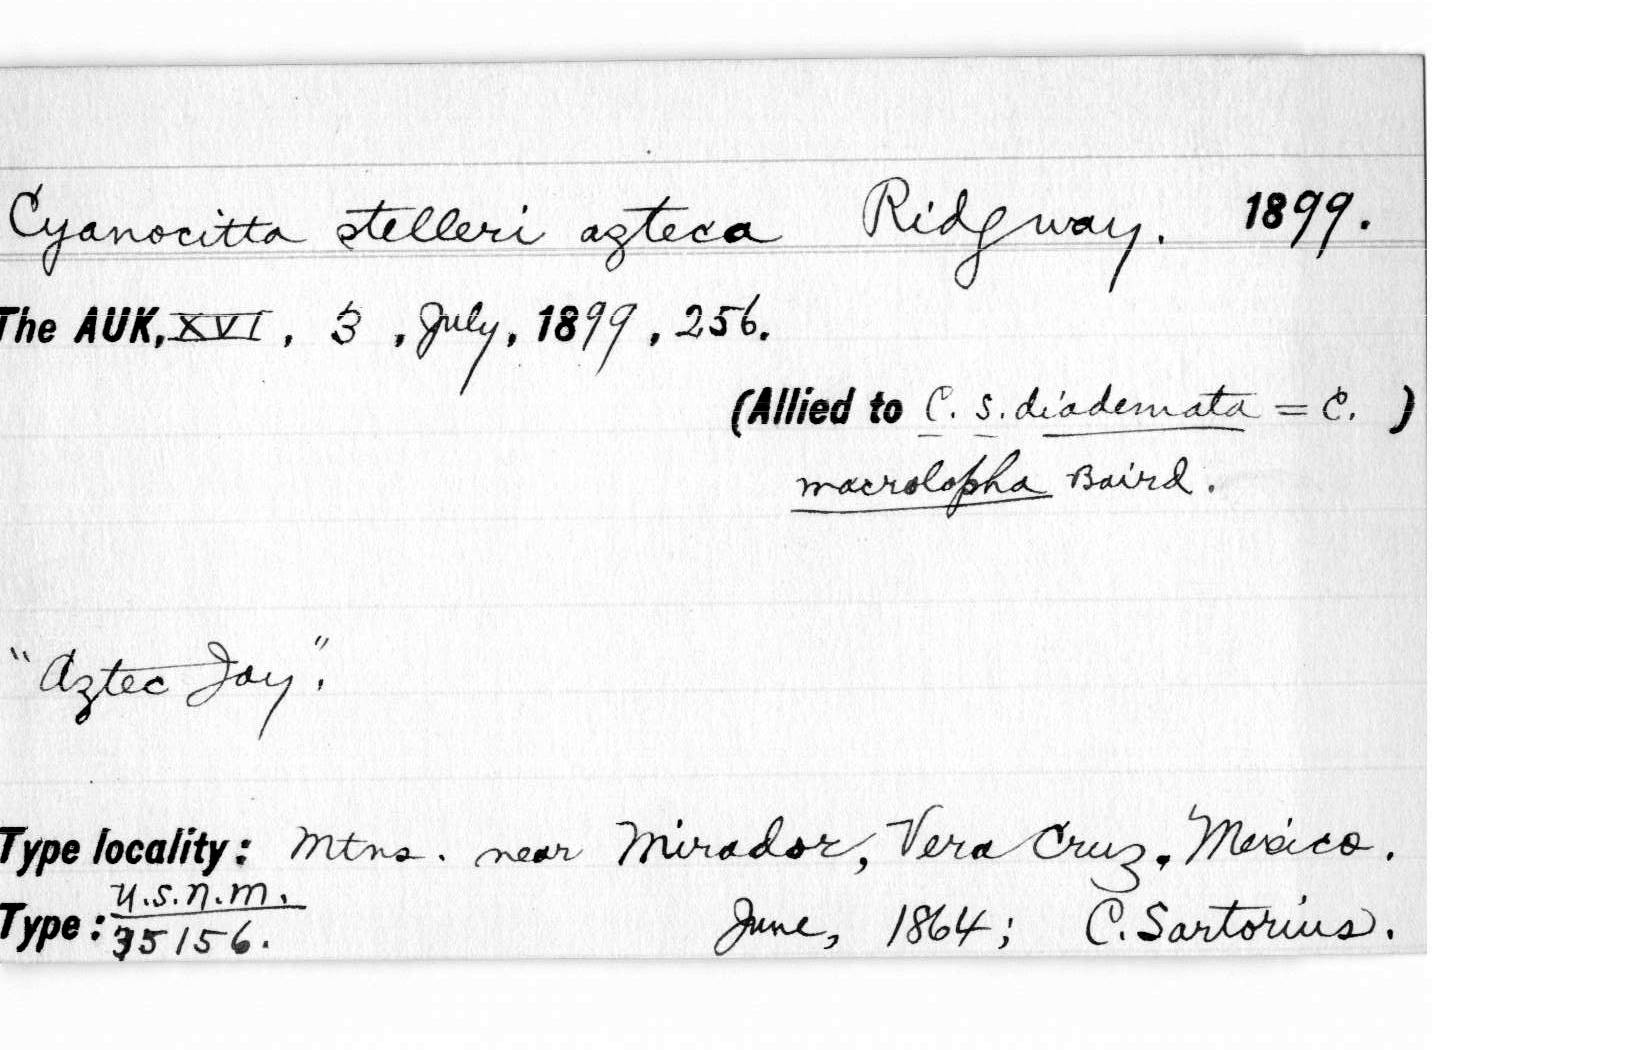 Cyanocitta stelleri azteca Ridgway. 1899.
The AUK, XVI, 3, July, 1899, 256.
(Allied to C. s. diademata = C. )
macrolopha Baird.
"Aztec Jay".
Type locality: Mtns. near Mirador, Vera Cruz, Mexico.
U.S.N.M.
Type: 35156. June, 1864; C. Sartorius.